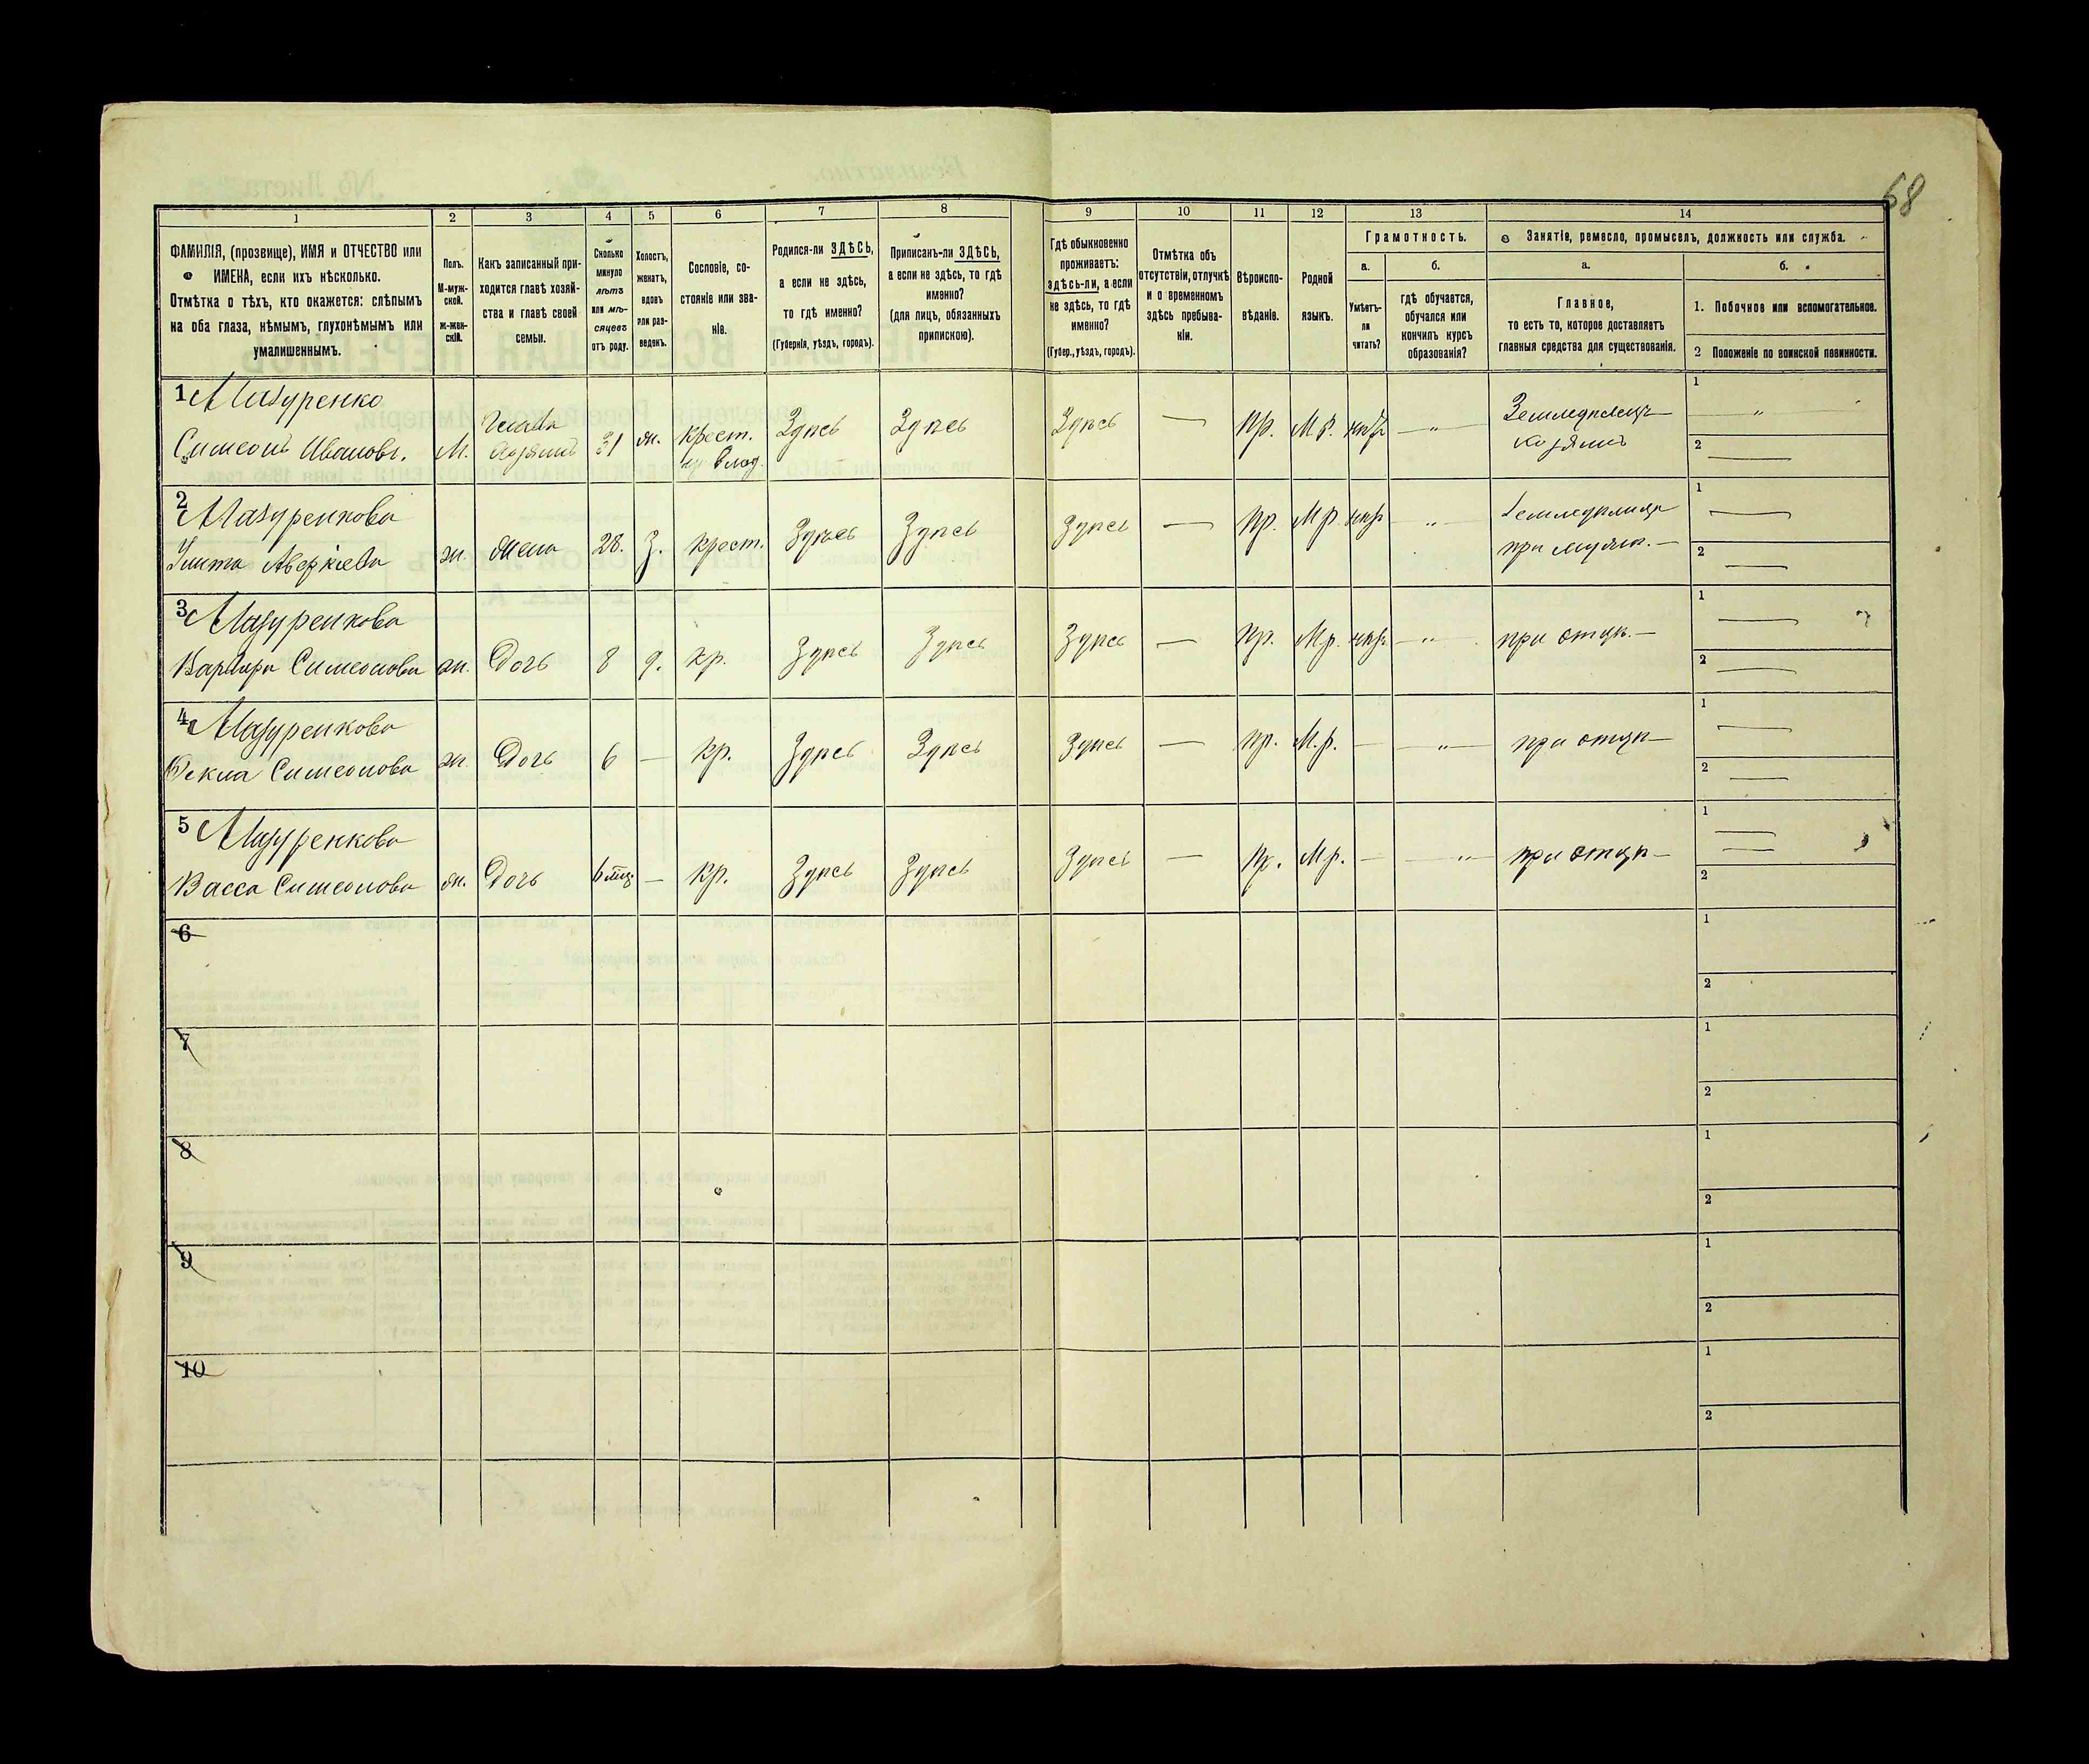 68
1 2 3 4 5 6 7 8 9 10 11 12 13 14
ФАМИЛІЯ, (прозвище), ИМЯ и ОТЧЕСТВО или
ИМЕНА, если ихъ нѣсколько.
Отмѣтка о тѣхъ, кто окажется: слѣпымъ
на оба глаза, нѣмымъ, глухонѣмымъ или
умалишеннымъ.
Полъ.
М-муж-
ской.
ж-жен-
скій.
Какъ записанный при-
ходится главѣ хозяй-
ства и главѣ своей
семьи.
Сколько
минуло
лѣтъ
или мѣ-
сяцевъ
отъ роду.
Холостъ,
женатъ,
вдовъ
или раз-
веденъ.
Сословіе, со-
стояніе или зва-
ніе.
Родился-ли ЗДѢСЬ,
а если не здѣсь,
то гдѣ именно?
(Губернія, уѣздъ, городъ).
Приписанъ-ли ЗДѢСЬ,
а если не здѣсь, то гдѣ
именно?
(для лицъ, обязанныхъ
припискою).
Гдѣ обыкновенно
проживаетъ:
здѣсь-ли, а если
не здѣсь, то гдѣ
именно?
(Губер., уѣздъ, городъ).
Отмѣтка объ
отсутствіи, отлучкѣ
и о временномъ
здѣсь пребыва-
ніи.
Вѣроиспо-
вѣданіе.
Родной
языкъ.
Грамотность.
а.
Умѣетъ-
ли
читать?
б.
гдѣ обучается,
обучался или
кончилъ курсъ
образованія?
Занятіе, ремесло, промыселъ, должность или служба.
а.
Главное,
то есть то, которое доставляетъ
главныя средства для существованія.
б.
1. Побочное или вспомогательное.
2 Положеніе по воинской повинности.
1 Мазуренко
Симеонъ Ивановъ. М. Глава хозяинъ 31 ж. крест. Влад. Здѣсь Здѣсь Здѣсь — Пр. М.р. — " — Земледѣлецъ— хозяинъ
1 — " —
2 —
2 Мазуренкова
Улита Аверкіева ж. жена 28. З. крест. Здѣсь Здѣсь Здѣсь — Пр. М.р " — при мужѣ. —
1 —
2 —
3 Мазуренкова
Варвара Симеонова ж. Дочь 8 д. кр. Здѣсь Здѣсь Здѣсь — Пр. М.р. — " — при отцѣ. —
1 —
2 —
4 Мазуренкова
Ѳекла Симеонова ж. Дочь 6 — Кр. Здѣсь Здѣсь Здѣсь — Пр. М.р. — — " — при отцѣ —
1 —
2 —
5 Мазуренкова
Васса Симеонова ж. Дочь 6 мѣц — Кр. Здѣсь Здѣсь Здѣсь — Пр. М.р. — — " — при отцѣ —
1 —
2
6
1
2
7
1
2
8
1
2
9
1
2
10
1
2